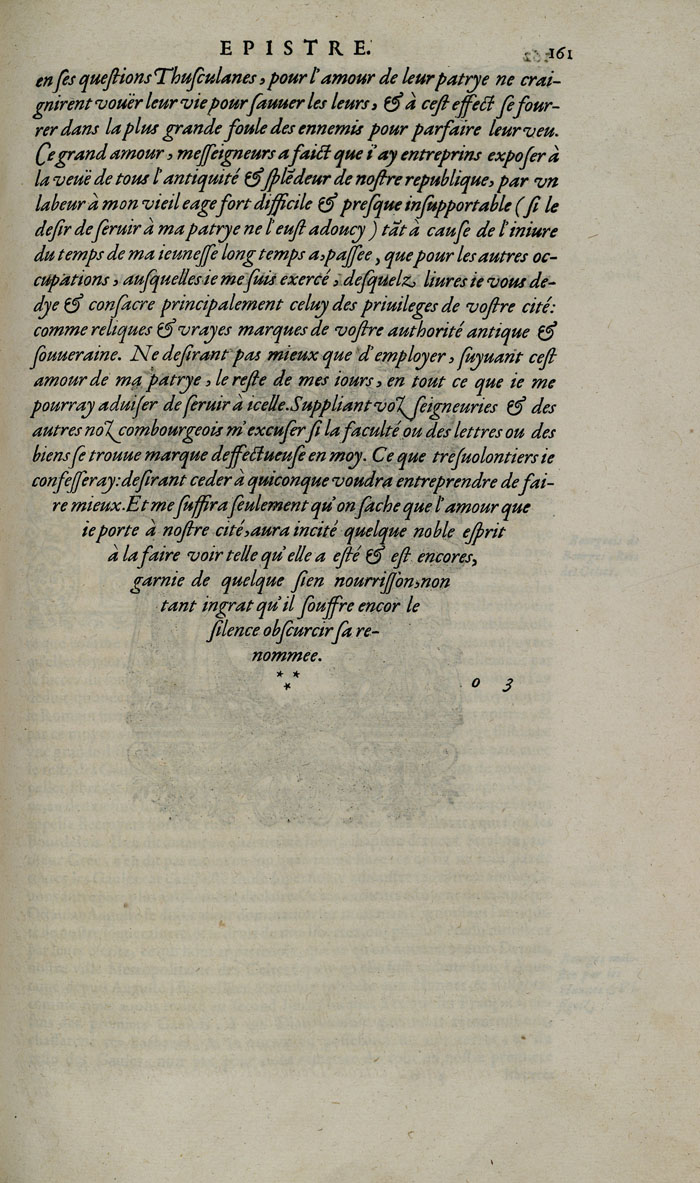 EPISTRE. 161
en ses questions Thusculanes, pour l'amour de leur patrye ne crai-
gnirent vouër leur vie pour sauuer les leurs, & à cest effect se four-
rer dans la plus grande foule des ennemis pour parfaire leur veu.
Ce grand amour, messeigneurs a faict que i'ay entreprins exposer à
la veuë de tous l'antiquité & splēdeur de nostre republique, par vn
labeur à mon vieil eage fort difficile & presque insupportable (si le
desir de seruir à ma patrye ne l'eust adoucy) tāt à cause de l'iniure
du temps de ma ieunesse long temps a, passee, que pour les autres oc-
cupations, ausquelles ie me suis exercé, desquelz liures ie vous de-
dye & consacre principalement celuy des priuileges de vostre cité:
comme reliques & vrayes marques de vostre authorité antique &
souueraine. Ne desirant pas mieux que d'employer, suyuant cest
amour de ma patrye, le reste de mes iours, en tout ce que ie me
pourray aduiser de seruir à icelle. Suppliant voz seigneuries & des
autres noz combourgeois m'excuser si la faculté ou des lettres ou des
biens se trouue marque deffectueuse en moy. Ce que tresuolontiers ie
confesseray: desirant ceder à quiconque voudra entreprendre de fai-
re mieux. Et me suffira seulement qu'on sache que l'amour que
ie porte à nostre cité, aura incité quelque noble esprit
à la faire voir telle qu'elle a esté & est encores,
garnie de quelque sien nourrisson, non
tant ingrat qu'il souffre encor le
silence obscurcir sa re-
nommee.
o 3